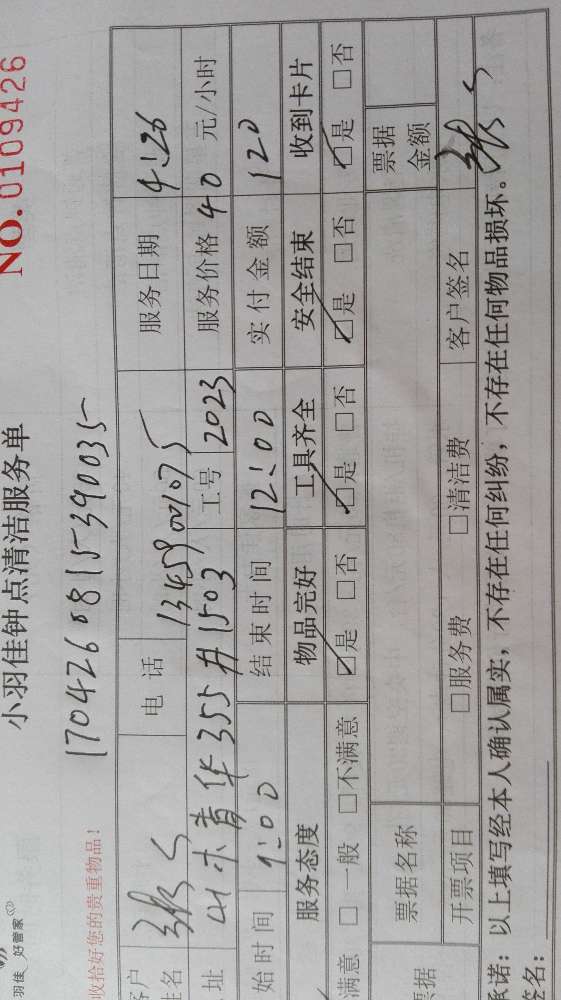 羽佳 好管家
小羽佳钟点清洁服务单
NO. 0109426
收给好您的贵重物品！
1704260815390035
客户姓名 张 电话 13459001075 服务日期 4:26
址 355#1503 工号 2023 服务价格 40 元/小时
始时间 9:00 结束时间 12:00 实付金额 120
服务态度 物品完好 工具齐全 安全结束 收到卡片
满意 □一般 □不满意 ☑是 □否 ☑是 □否 ☑是 □否 ☑是 □否
票据 票据名称 票据金额
开票项目 □服务费 □清洁费 客户签名 张
承诺：以上填写经本人确认属实，不存在任何纠纷，不存在任何物品损坏。
签名：